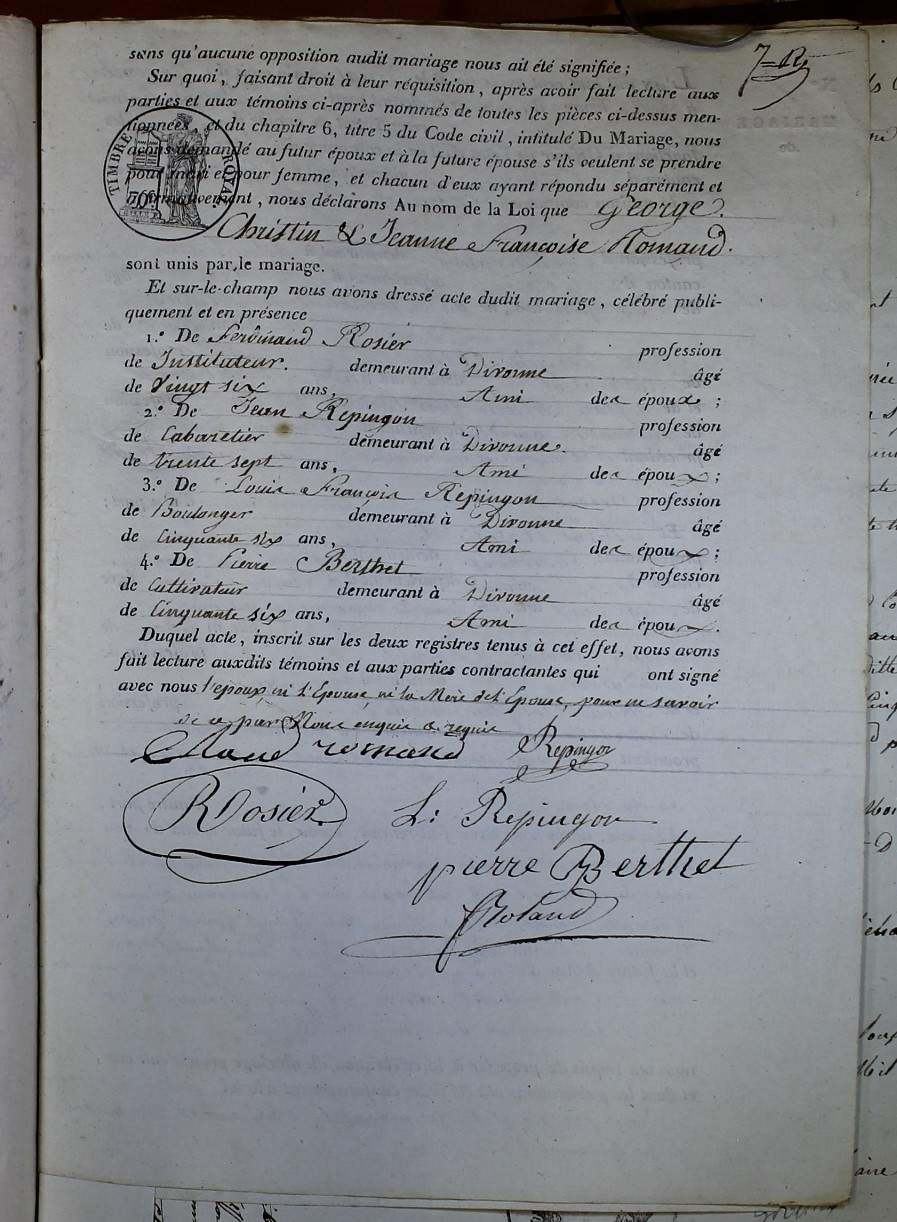 7=R
sans qu'aucune opposition audit mariage nous ait été signifiée ;
Sur quoi, faisant droit à leur réquisition, après avoir fait lecture aux
parties et aux témoins ci-après nommés de toutes les pièces ci-dessus men-
tionnées, et du chapitre 6, titre 5 du Code civil, intitulé Du Mariage, nous
avons demandé au futur époux et à la future épouse s'ils veulent se prendre
pour mari et pour femme, et chacun d'eux ayant répondu séparément et
affirmativement, nous déclarons Au nom de la Loi que George.
Christin & Jeanne Françoise Romand.
sont unis par le mariage.
Et sur-le-champ nous avons dressé acte dudit mariage, célébré publi-
quement et en présence
1.° De Ferdinand Rosier profession
de Instituteur. demeurant à Divonne âgé
de Vingt six ans, Ami des époux ;
2.° De Jean Repingon profession
de Cabaretier demeurant à Divonne. âgé
de trente sept ans, Ami des époux ;
3.° De Louis François Repingon profession
de Boulanger demeurant à Divonne âgé
de Cinquante six ans, Ami des époux ;
4.° De Pierre Berthet profession
de Cultivateur demeurant à Divonne âgé
de Cinquante six ans, Ami des époux.
Duquel acte, inscrit sur les deux registres tenus à cet effet, nous avons
fait lecture auxdits témoins et aux parties contractantes qui ont signé
avec nous l'epoux, ni L'Epouse, ni la Mere de L'Epouse, pour ne savoir
de ce par Nous enquis & requis
Claud romand Repingon
Rosier L: Repingon
pierre Berthet
Roland
TIMBRE ROYAL